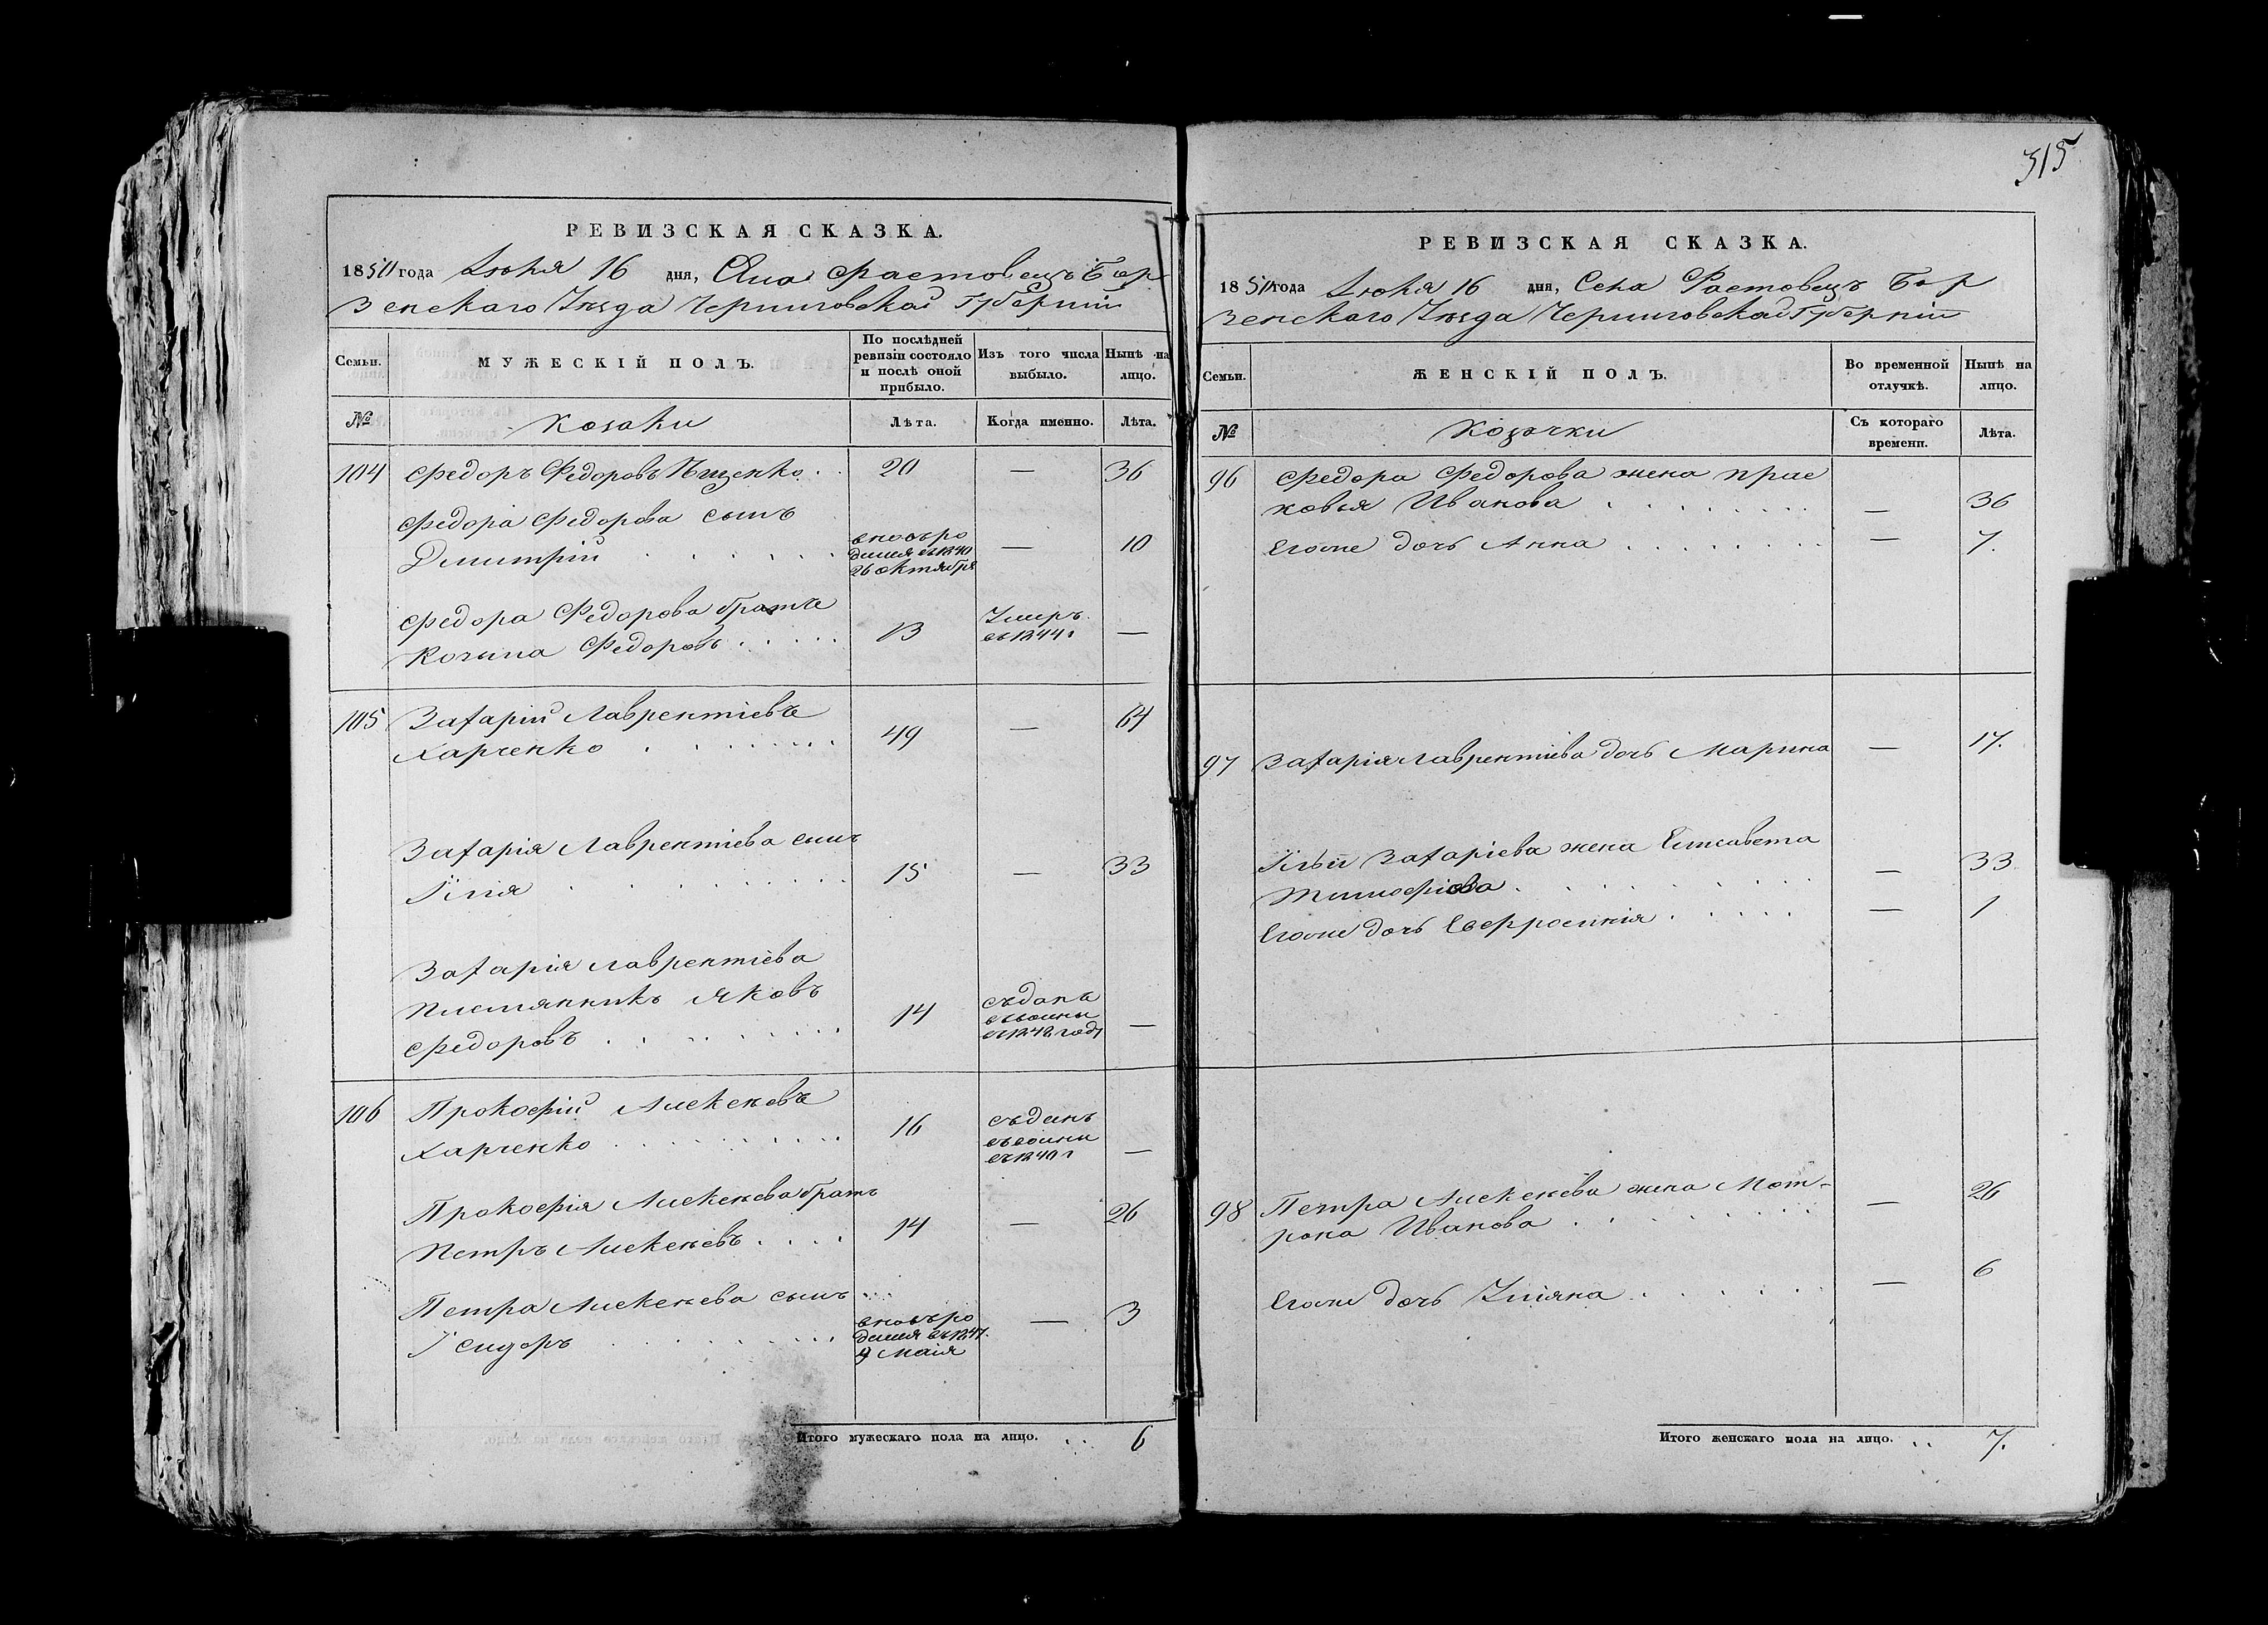 315
РЕВИЗСКАЯ СКАЗКА.
1850 года Іюня 16 дня, Села Фастовецъ Бор
зенскаго Уѣзда Черниговской Губерніи
Семьи.
МУЖЕСКІЙ ПОЛЪ.
По послѣдней ревизіи состояло и послѣ оной прибыло.
Изъ того числа выбыло.
Нынѣ на лицо.
№
Козаки
Лѣта.
Когда именно.
Лѣта.
104 Федоръ Федоровъ Пищенко . . 20 — 36
Федора Федорова сынъ
Дмитрій . . . . . вновь ро
дился въ 1840
26 октября — 10
Федора Федорова братъ
Федоровъ . . . . 13 Умеръ
въ 1844 г —
105 Захарій Лаврентіевъ
Харченко . . . . . . 49 — 64
Захарія Лаврентіева сынъ
Илія . . . . . . 15 — 33
Захарія Лаврентіева
племянникъ Яковъ
Федоровъ . . . . . . 14 —
106 Прокофій Алексѣевъ
Харченко . . . . . . 16 —
Прокофія Алексѣева братъ
Петръ Алексѣевъ . . . . 14 — 26
Петра Алексѣева сынъ . . .
Ісидоръ . . . . . . вновь ро
дился въ 1847.
9 Маія — 3
Итого мужескаго пола на лицо. . . 6
РЕВИЗСКАЯ СКАЗКА.
1850 года Іюня 16 дня, Села Фастовецъ Бор
зенскаго Уѣзда Черниговской Губерніи
Семьи.
ЖЕНСКІЙ ПОЛЪ.
Во временной отлучкѣ.
Нынѣ на лицо.
№
Козачки
Съ котораго времени.
Лѣта.
96 Федора Федорова жена Прас
ковья Иванова . . . . . . — 36
Егоже дочь Анна . . . . . . — 7.
97 Захарія Лаврентіева дочь Марина — 17.
Ильи Захаріева жена Елисавета
Тимофіева . . . . . . — 33
Егоже дочь Евфросинія . . . . . — 1
98 Петра Алексѣева жена Мот-
рона Иванова . . . . . . — 26
Егоже дочь Уліяна . . . . . — 6
Итого женскаго пола на лицо. . . 7.